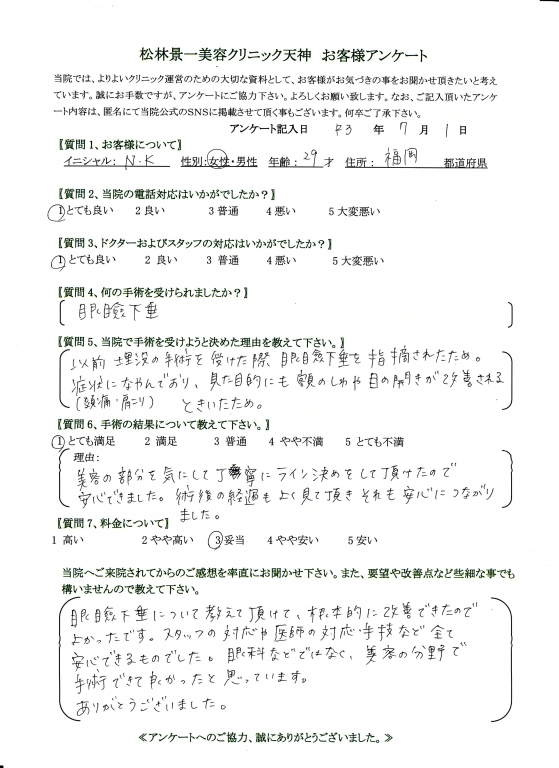 松林景一美容クリニック天神 お客様アンケート
当院では、よりよいクリニック運営のための大切な資料として、お客様がお気づきの事をお聞かせ頂きたいと考え
ています。誠にお手数ですが、アンケートにご協力下さい。よろしくお願い致します。なお、ご記入頂いたアンケ
ート内容は、匿名にて当院公式のSNSに掲載させて頂く事もございます。何卒ご了承下さい。
アンケート記入日 R3 年 7 月 1 日
【質問 1、お客様について】
イニシャル: N.K 性別:女性・男性 年齢:29才 住所: 福岡 都道府県
【質問 2、当院の電話対応はいかがでしたか?】
1 とても良い 2 良い 3 普通 4 悪い 5 大変悪い
【質問 3、ドクターおよびスタッフの対応はいかがでしたか?】
1 とても良い 2 良い 3 普通 4 悪い 5 大変悪い
【質問 4、何の手術を受けられましたか?】
眼瞼下垂
【質問 5、当院で手術を受けようと決めた理由を教えて下さい。】
以前 埋没の手術を受けた際、眼瞼下垂を指摘されたため。
症状になやんでおり、見た目的にも額のしわや目の開きが改善される
(頭痛・肩こり) ときいたため。
【質問 6、手術の結果について教えて下さい。】
1 とても満足 2 満足 3 普通 4 やや不満 5 とても不満
理由:
美容の部分を気にして丁寧にライン決めをして頂けたので
安心できました。術後の経過もよく見て頂きそれも安心につながり
ました。
【質問 7、料金について】
1 高い 2 やや高い 3 妥当 4 やや安い 5 安い
当院へご来院されてからのご感想を率直にお聞かせ下さい。また、要望や改善点など些細な事でも
構いませんので教えて下さい。
眼瞼下垂について教えて頂けて、根本的に改善できたので
よかったです。スタッフの対応や医師の対応・手技など全て
安心できるものでした。眼科などではなく、美容の分野で
手術できて良かったと思っています。
ありがとうございました。
≪アンケートへのご協力、誠にありがとうございました。≫